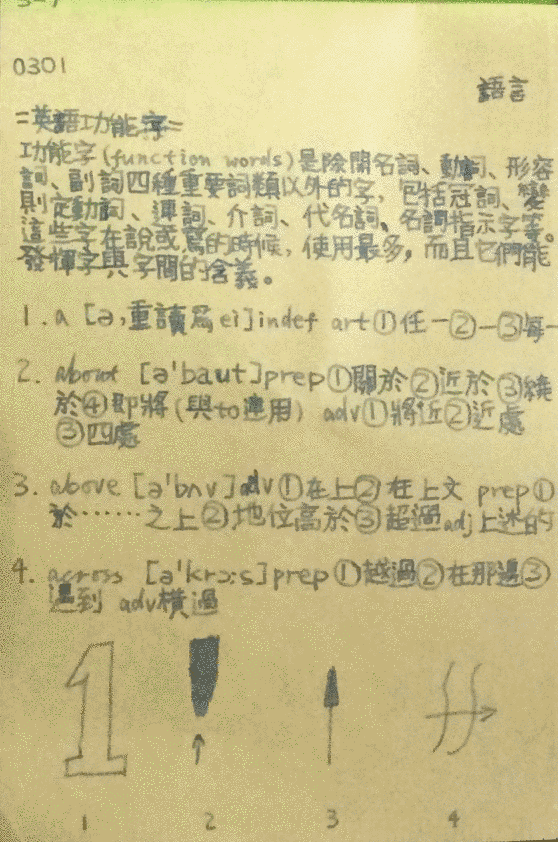 0301
語言
=英語功能字=
功能字(function words)是除開名詞、動詞、形容
詞、副詞四種重要詞類以外的字，包括冠詞、變
則定動詞、連詞、介詞、代名詞、名詞指示字等。
這些字在說或寫的時候，使用最多，而且它們能
發揮字與字間的含義。
1. a [ə,重讀爲ei]indef art①任一②一③每一
2. about [ə'baut]prep①關於②近於③繞
於④即將(與to連用) adv①將近②近處
③四處
3. above [ə'bʌv]adv①在上②在上文 prep①
於……之上②地位高於③超過adj上述的
4. across [ə'krɔ:s]prep①越過②在那邊③
遇到 adv橫過
1
1 2 3 4